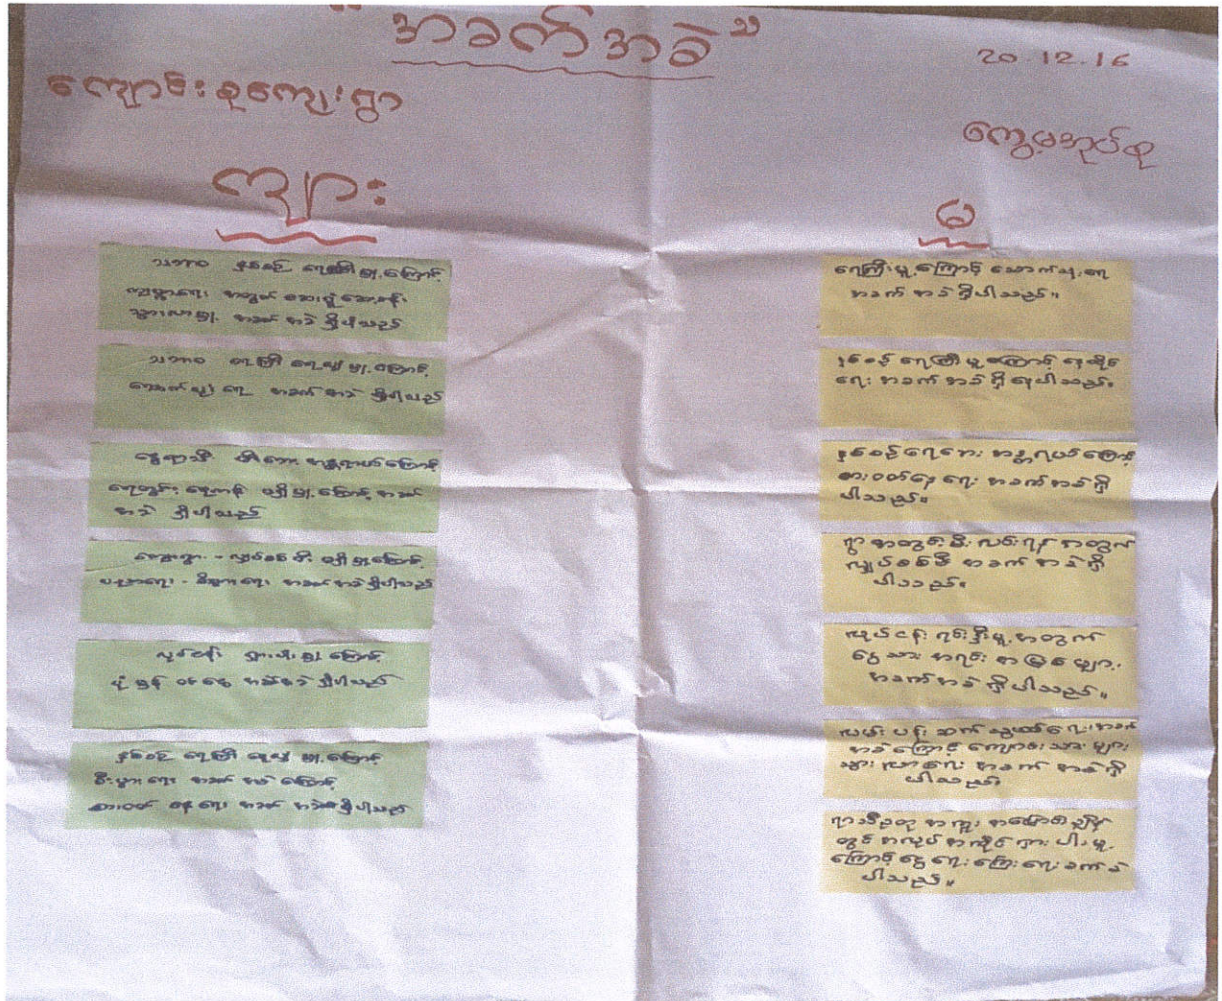 "အခက်အခဲ"
20.12.16
ကျောင်းစုကျေးရွာ
ကွေ့မအုပ်စု
ကျား
သဘာဝ နှစ်စဉ် ရေကြီးမှု့ကြောင့်
ကျန်းမာရေး အတွက် ဆေးရုံဆေးခန်း
သွားလာမှု့ အခက် အခဲ ရှိပါသည်
သဘာဝ ရေကြီး ရေလျှံမှု့ကြောင့်
သောက်သုံးရေ အခက် အခဲ ရှိပါသည်
နွေရာသီ မီးဘေး အန္တရာယ်ကြောင့်
ရေတွင်း ရေကန် မရှိမှု့ကြောင့် အခက်
အခဲ ရှိပါသည်
ကျေးရွာ - လျှပ်စစ်မီး မရှိမှု့ကြောင့်
ပညာရေး - စီးပွားရေး အခက် အခဲ ရှိပါသည်
လုပ်ငန်း ရှားပါးမှု့ကြောင့်
ပုံမှန် ဝင်ငွေ အခက်အခဲ ရှိပါသည်
နှစ်စဉ် ရေကြီး ရေလျှံမှု့ကြောင့်
စီးပွားရေး အခက် အခဲ ကြောင့်
စားဝတ် နေရေး အခက် အခဲရှိပါသည်
မ
ရေကြီးမှု့ကြောင့် သောက်သုံးရေ
အခက် အခဲ ရှိပါသည်။
နှစ်စဉ် ရေကြီးမှု့ကြောင့် နေထိုင်
ရေး အခက် အခဲ ရှိရပါသည်။
နှစ်စဉ် ရေဘေး အန္တရာယ်ကြောင့်
စားဝတ်နေရေး အခက်အခဲရှိ
ပါသည်။
ရွာ အတွင်း မီး လင်းရန် အတွက်
လျှပ်စစ်မီး အခက် အခဲ ရှိ
ပါသည်။
လုပ်ငန်း ရင်းနှီးမှု့ အတွက်
ငွေသား အရင်း အမြစ်များ
အခက်အခဲ ရှိပါသည်။
လမ်း ပန်း ဆက် သွယ်ရေး အခက်
အခဲကြောင့် ကျောင်းသားများ
သွားလာရေး အခက် အခဲရှိ
ပါသည်။
ရာသီဥတု အကူး အပြောင်းချိန်
တွင် အလုပ် အကိုင် ရှား ပါးမှု့
ကြောင့် ငွေရေး ကြေးရေး ခက်ခဲ
ပါသည်။